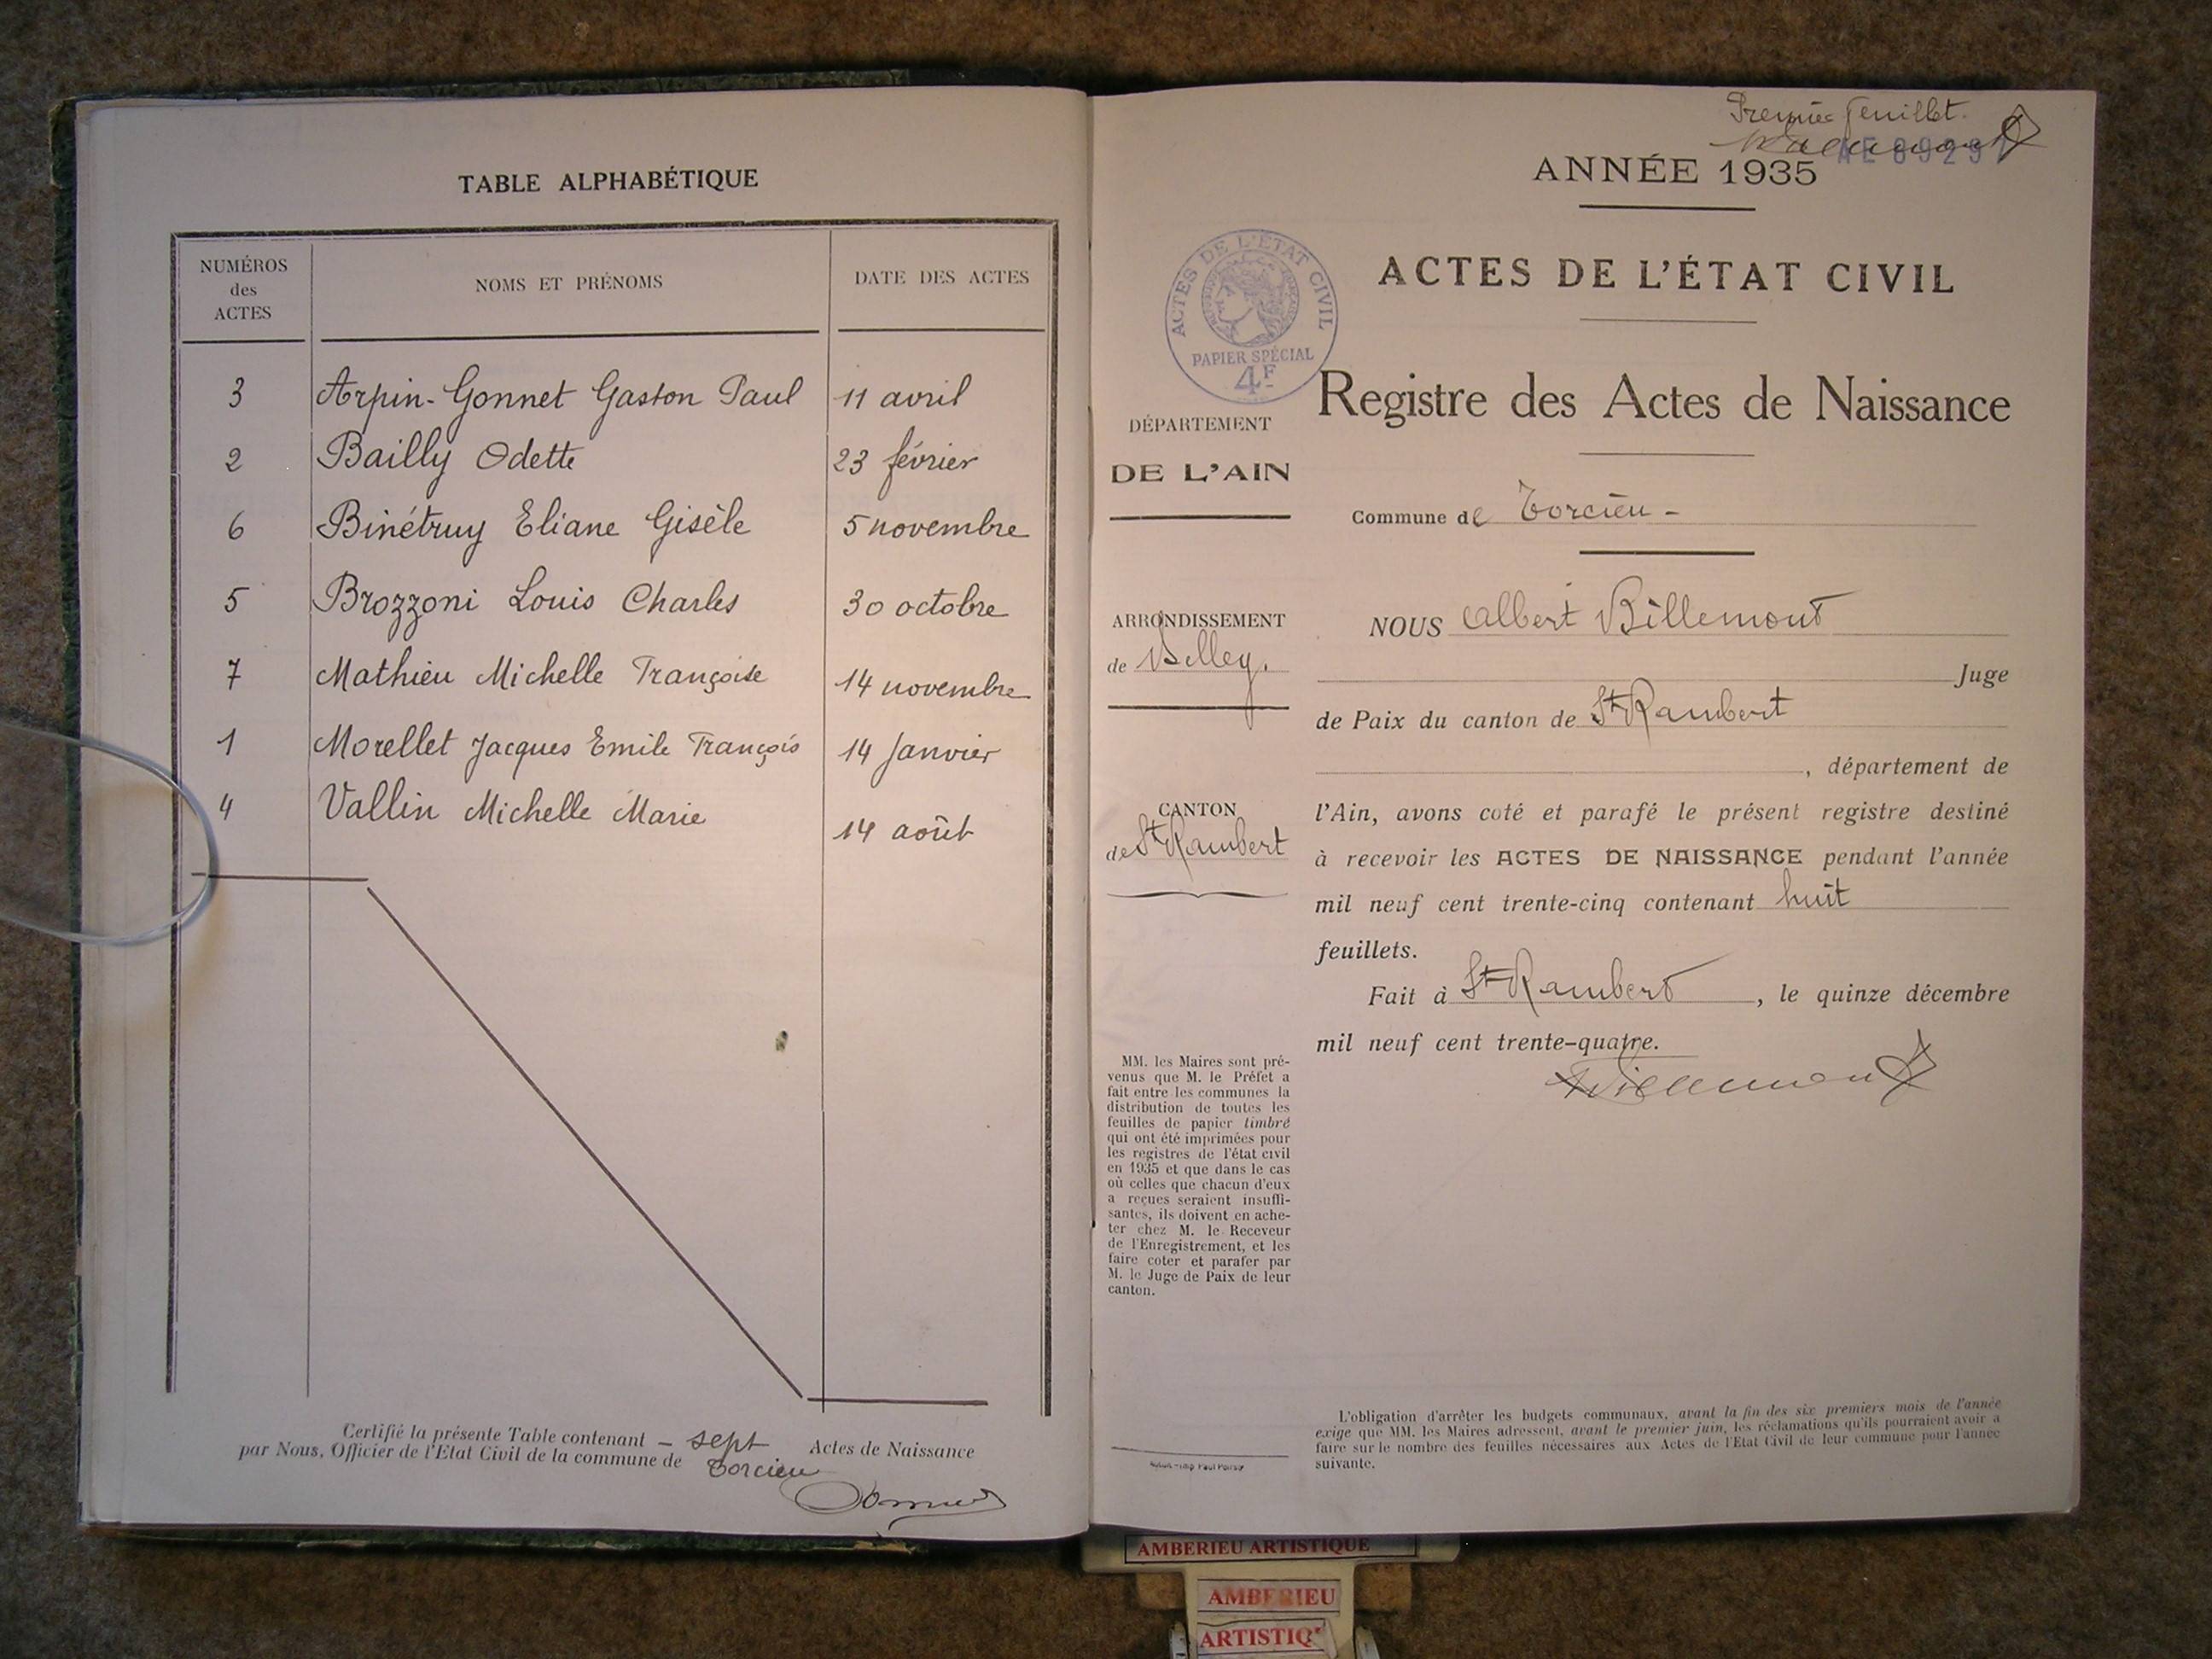 TABLE ALPHABÉTIQUE
NUMÉROS
des
ACTES
NOMS ET PRÉNOMS
DATE DES ACTES
3 Arpin-Gonnet Gaston Paul 11 avril
2 Bailly Odette 23 février
6 Binétruy Eliane Gisèle 5 novembre
5 Brozzoni Louis Charles 30 octobre
7 Mathieu Michelle Françoise 14 novembre
1 Morellet Jacques Emile François 14 Janvier
4 Vallin Michelle Marie 14 août
Certifié la présente Table contenant – sept Actes de Naissance
par Nous, Officier de l'Etat Civil de la commune de Torcieu
Premier feuillet.
ANNÉE 1935
ACTES DE L'ÉTAT CIVIL
ACTES DE L'ÉTAT CIVIL
PAPIER SPÉCIAL
4F
Registre des Actes de Naissance
DÉPARTEMENT
DE L'AIN
Commune de Torcieu -
ARRONDISSEMENT
de Belley.
NOUS Albert Billemont
Juge
de Paix du canton de St Rambert
, département de
CANTON
de St Rambert
l'Ain, avons coté et parafé le présent registre destiné
à recevoir les ACTES DE NAISSANCE pendant l'année
mil neuf cent trente-cinq contenant huit
feuillets.
Fait à St Rambert, le quinze décembre
mil neuf cent trente-quatre.
MM. les Maires sont pré-
venus que M. le Préfet a
fait entre les communes la
distribution de toutes les
feuilles de papier timbré
qui ont été imprimées pour
les registres de l'état civil
en 1935 et que dans le cas
où celles que chacun d'eux
a reçues seraient insuffi-
santes, ils doivent en ache-
ter chez M. le Receveur
de l'Enregistrement, et les
faire coter et parafer par
M. le Juge de Paix de leur
canton.
L'obligation d'arrêter les budgets communaux, avant la fin des six premiers mois de l'année
exige que MM. les Maires adressent, avant le premier juin, les réclamations qu'ils pourraient avoir a
faire sur le nombre des feuilles nécessaires aux Actes de l'Etat Civil de leur commune pour l'année
suivante.
AMBERIEU ARTISTIQUE
AMBERIEU
ARTISTIQ